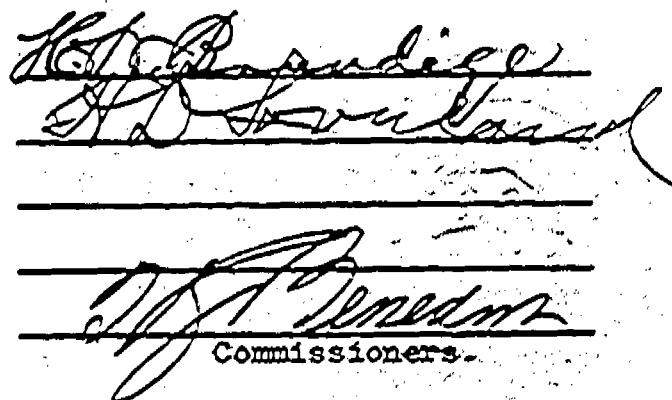 Brundige
H D Loveland
Benedict
Commissioners.